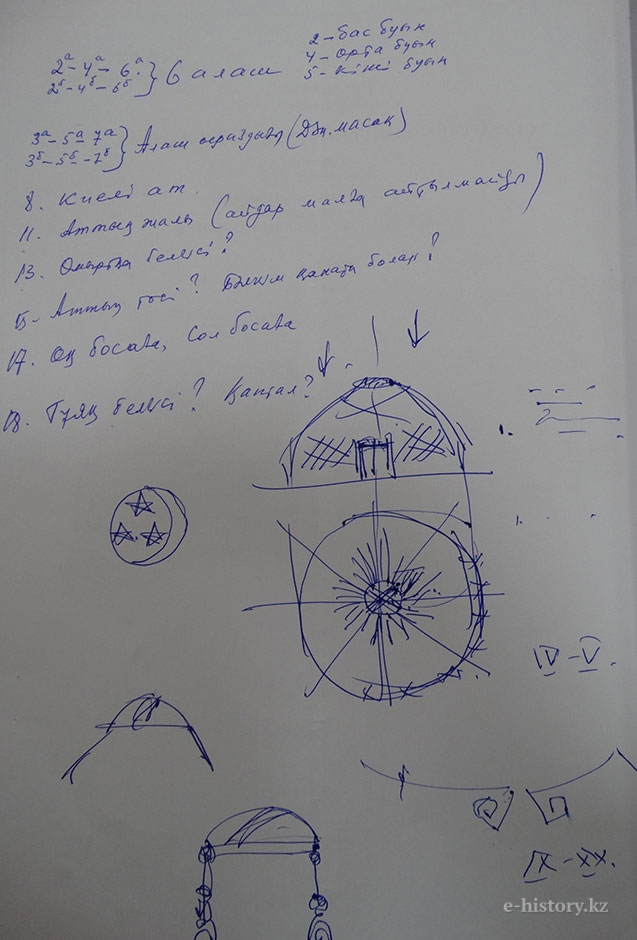 2ᵃ - 4ᵃ - 6ᵃ
2ᵇ - 4ᵇ - 6ᵇ } 6 алаш
2 - бас буын
4 - орта буын
5 - кіші буын
3ᵃ - 5ᵃ - 7ᵃ
3ᵇ - 5ᵇ - 7ᵇ } Алаш (Дән.масақ)
8. Киелі ат.
11. Аттың жалы (айдар малға айтылмайды)
13. Омыртқа белгісі?
15. Аттың төсі? Бәлкім қанаты болар?
17. Оң босаға, Сол босаға
18. Тұяқ белгісі? Қаптал?
1.
2
1.
IV - V.
IX - XX.
e-history.kz